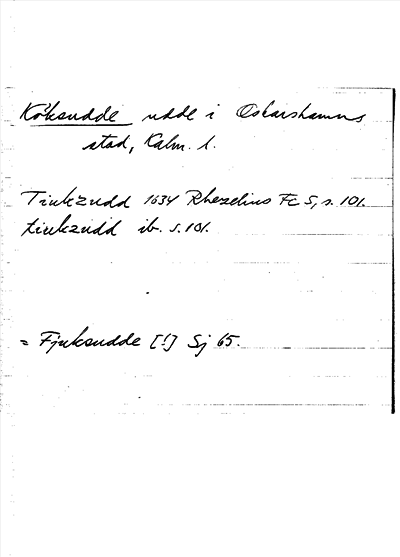 Köksudde udde i Oskarshamns
stad, Kalm. l.
Tiukzudd 1634 Rhezelius Fc 5, s. 101.
tiukzudd ib. s. 101.
= Fjuksudde [!] Sj 65.